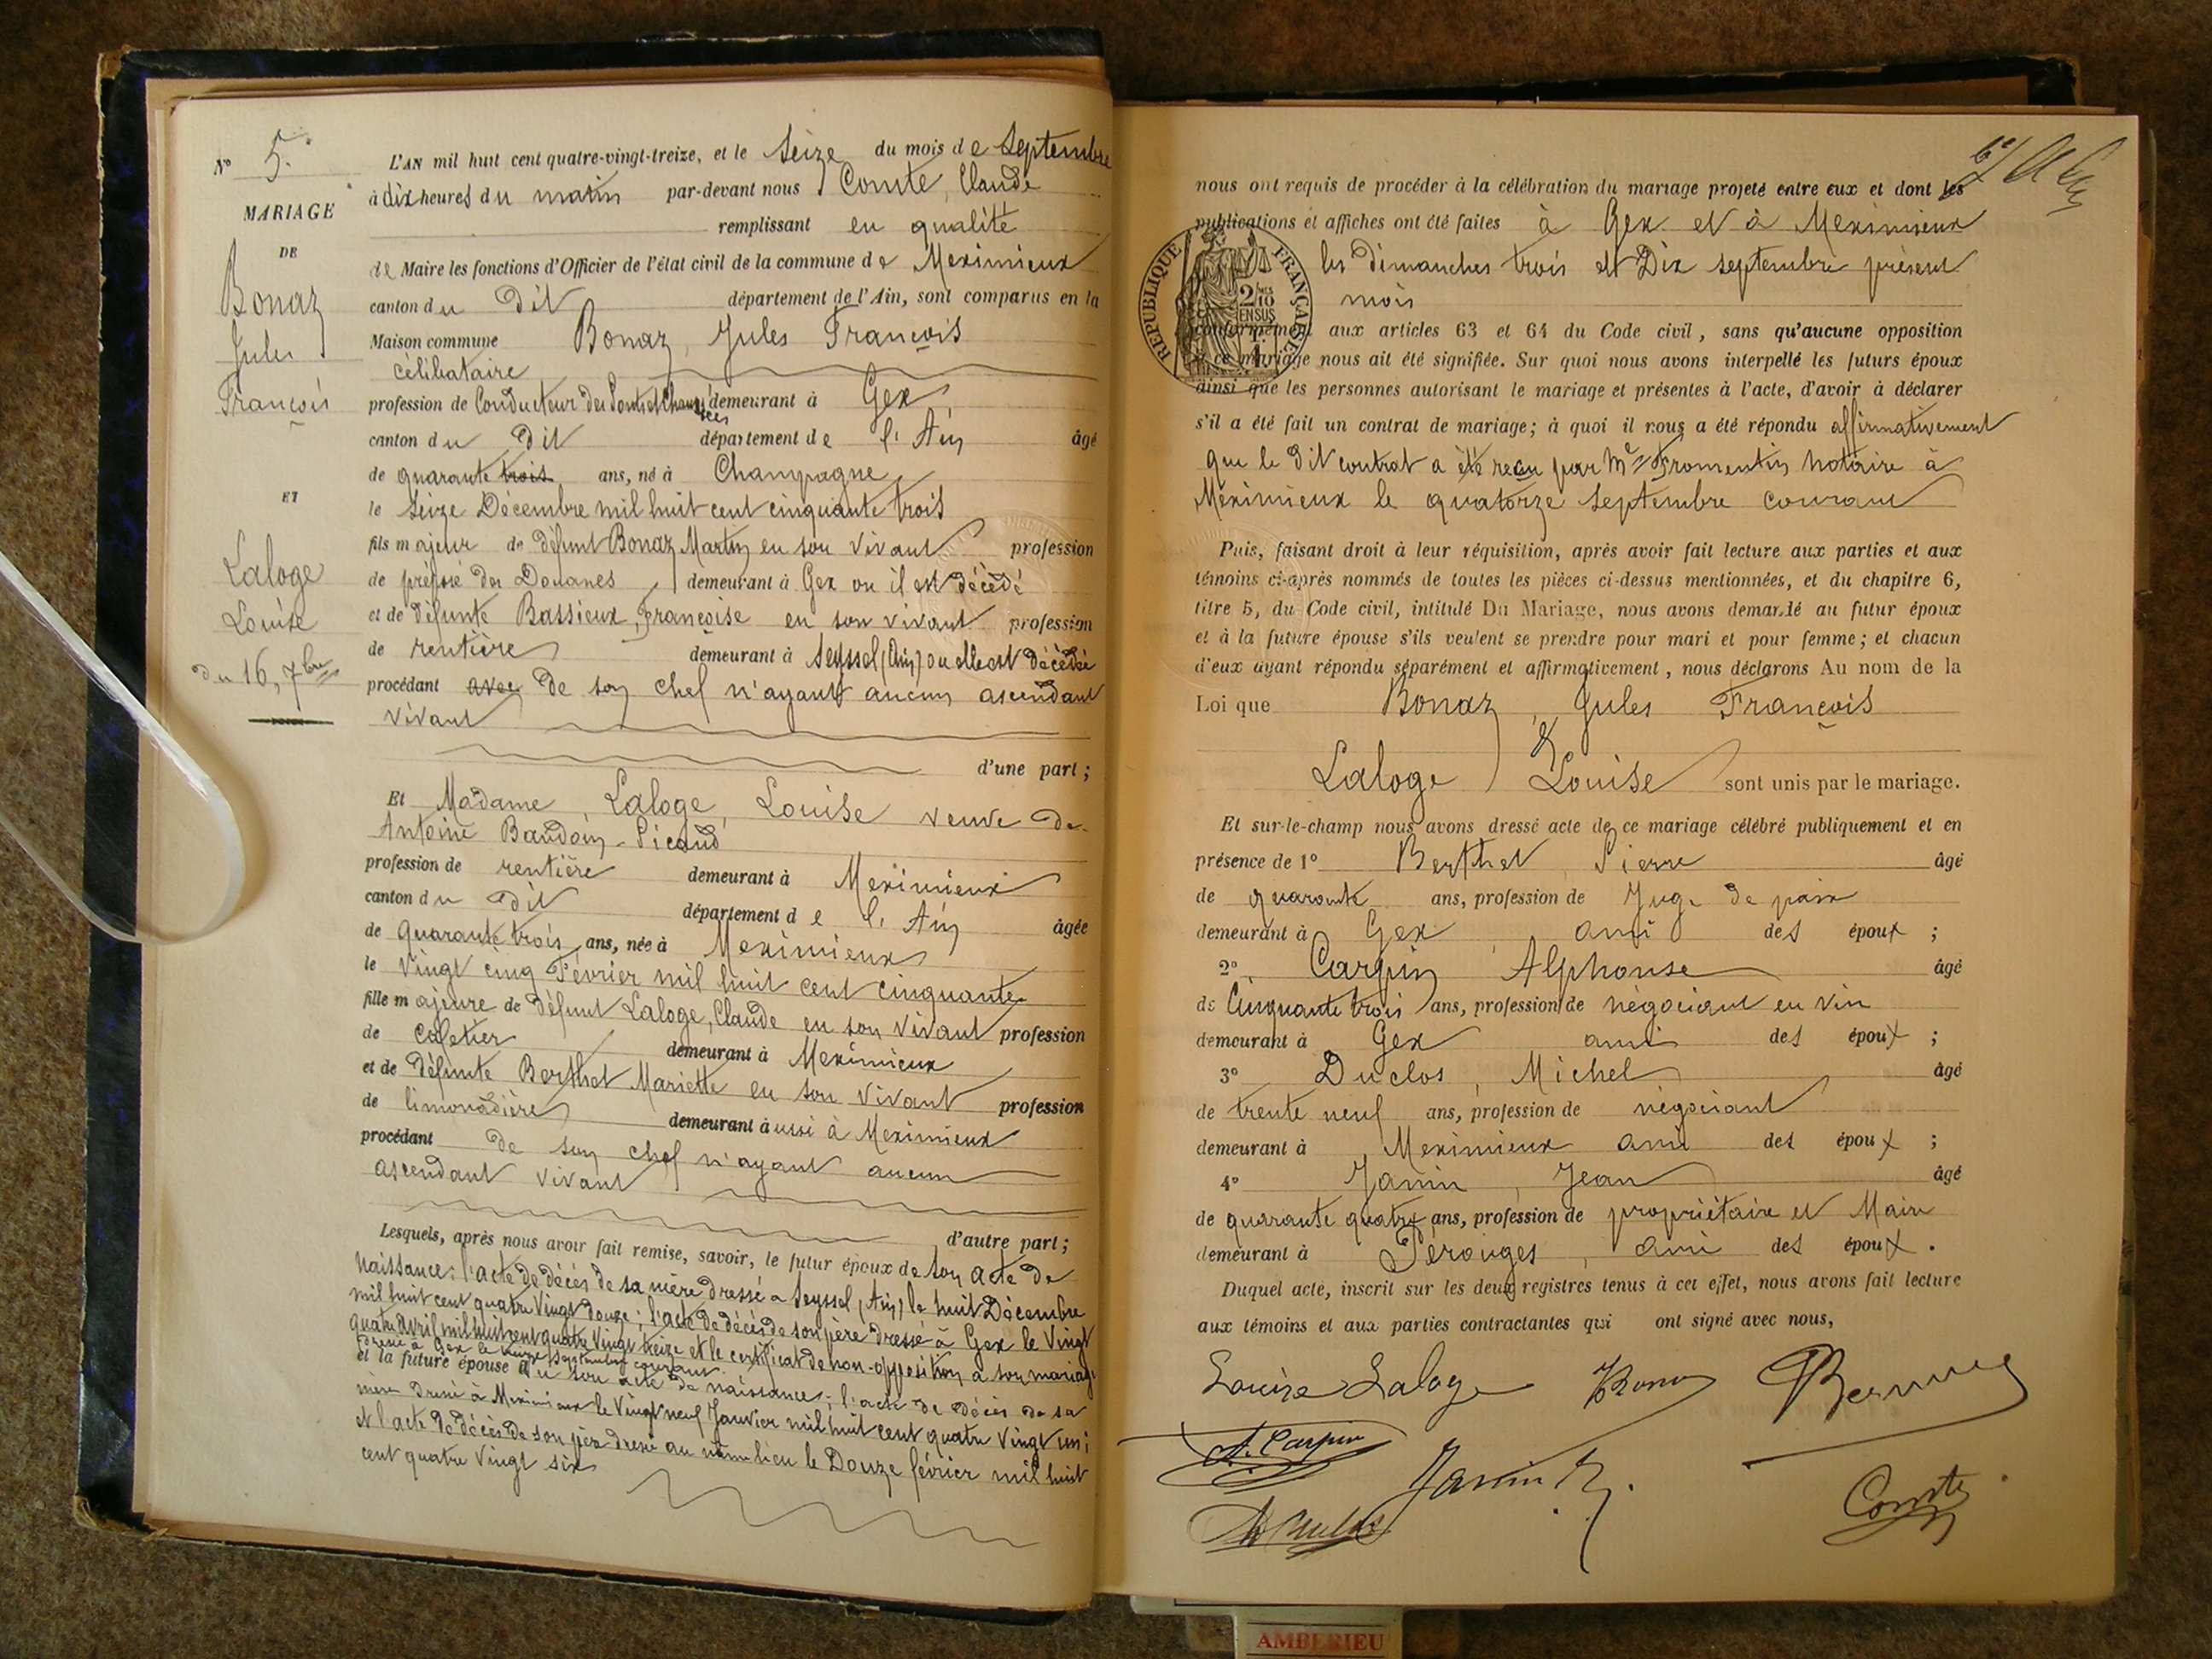 N° 5.
MARIAGE
DE
Bonaz
Jules
François
ET
Laloge
Louise
du 16, 7bre
L'AN mil huit cent quatre-vingt-treize, et le Seize du mois de Septembre
à dix heures du matin par-devant nous Comte, Claude
remplissant en qualité
de Maire les fonctions d'Officier de l'état civil de la commune de Meximieux
canton du dit département de l'Ain, sont comparus en la
Maison commune Bonaz, Jules François
célibataire
profession de Conducteur des Ponts et Chaussées demeurant à Gex
canton du dit département de l'Ain âgé
de quarante trois ans, né à Champagne
le Seize Décembre mil huit cent cinquante trois
fils majeur de défunt Bonaz Martin en son vivant profession
de préposé des Douanes, demeurant à Gex ou il est décédé
et de défunte Bassieux, Françoise en son vivant profession
de rentière demeurant à Seyssel (Ain) ou elle est décédée
procédant avec de son chef n'ayant aucun ascendant
vivant
d'une part ;
Et Madame, Laloge, Louise veuve de
Antoine Baudoin-Picaud
profession de rentière demeurant à Meximieux
canton du dit département de l'Ain âgée
de quarante trois ans, née à Meximieux
le Vingt cinq Février mil huit cent cinquante
fille majeure de défunt Laloge, Claude en son vivant profession
de cafetier demeurant à Meximieux
et de défunte Berthet Mariette en son vivant profession
de limonadière demeurant aussi à Meximieux
procédant de son chef n'ayant aucun
ascendant vivant
d'autre part ;
Lesquels, après nous avoir fait remise, savoir, le futur époux de son acte de
Naissance ; l'acte de décès de sa mère dressé à Seyssel (Ain) le huit Décembre
mil huit cent quatre Vingt douze ; l'acte de décès de son père dressé à Gex le Vingt
quatre Avril mil huit cent quatre Vingt treize et le certificat de non-opposition a son mariage
dressé à Gex le treize Septembre courant
et la future épouse de son acte de naissance ; l'acte de décès de sa
mère dressé à Meximieux le Vingt neuf Janvier mil huit cent quatre Vingt un ;
et l'acte de décès de son père dressé au même lieu le Douze février mil huit
cent quatre Vingt six
nous ont requis de procéder à la célébration du mariage projeté entre eux et dont les
publications et affiches ont été faites à Gex et à Meximieux
les dimanches trois et Dix septembre présent
mois
conformément aux articles 63 et 64 du Code civil, sans qu'aucune opposition
à ce mariage nous ait été signifiée. Sur quoi nous avons interpellé les futurs époux
ainsi que les personnes autorisant le mariage et présentes à l'acte, d'avoir à déclarer
s'il a été fait un contrat de mariage ; à quoi il nous a été répondu affirmativement
que le dit contrat a été reçu par Me Fromentin Notaire à
Meximieux le quatorze Septembre courant
RÉPUBLIQUE FRANÇAISE
2/10
EN SUS
Puis, faisant droit à leur réquisition, après avoir fait lecture aux parties et aux
témoins ci-après nommés de toutes les pièces ci-dessus mentionnées, et du chapitre 6,
titre 5, du Code civil, intitulé Du Mariage, nous avons demandé au futur époux
et à la future épouse s'ils veulent se prendre pour mari et pour femme ; et chacun
d'eux ayant répondu séparément et affirmativement, nous déclarons Au nom de la
Loi que Bonaz, Jules François
&
Laloge Louise sont unis par le mariage.
Et sur-le-champ nous avons dressé acte de ce mariage célébré publiquement et en
présence de 1° Berthet Pierre âgé
de quarante ans, profession de Juge de paix
demeurant à Gex ami des époux ;
2° Carpin Alphonse âgé
de Cinquante trois ans, profession de négociant en vin
demeurant à Gex ami des époux ;
3° Duclos, Michel âgé
de trente neuf ans, profession de négociant
demeurant à Meximieux ami des époux ;
4° Janin, Jean âgé
de quarante quatre ans, profession de propriétaire et Maire
demeurant à Pérouges, ami des époux.
Duquel acte, inscrit sur les deux registres tenus à cet effet, nous avons fait lecture
aux témoins et aux parties contractantes qui ont signé avec nous,
Louise Laloge
A. Carpin
Janin
Comte
AMBERIEU